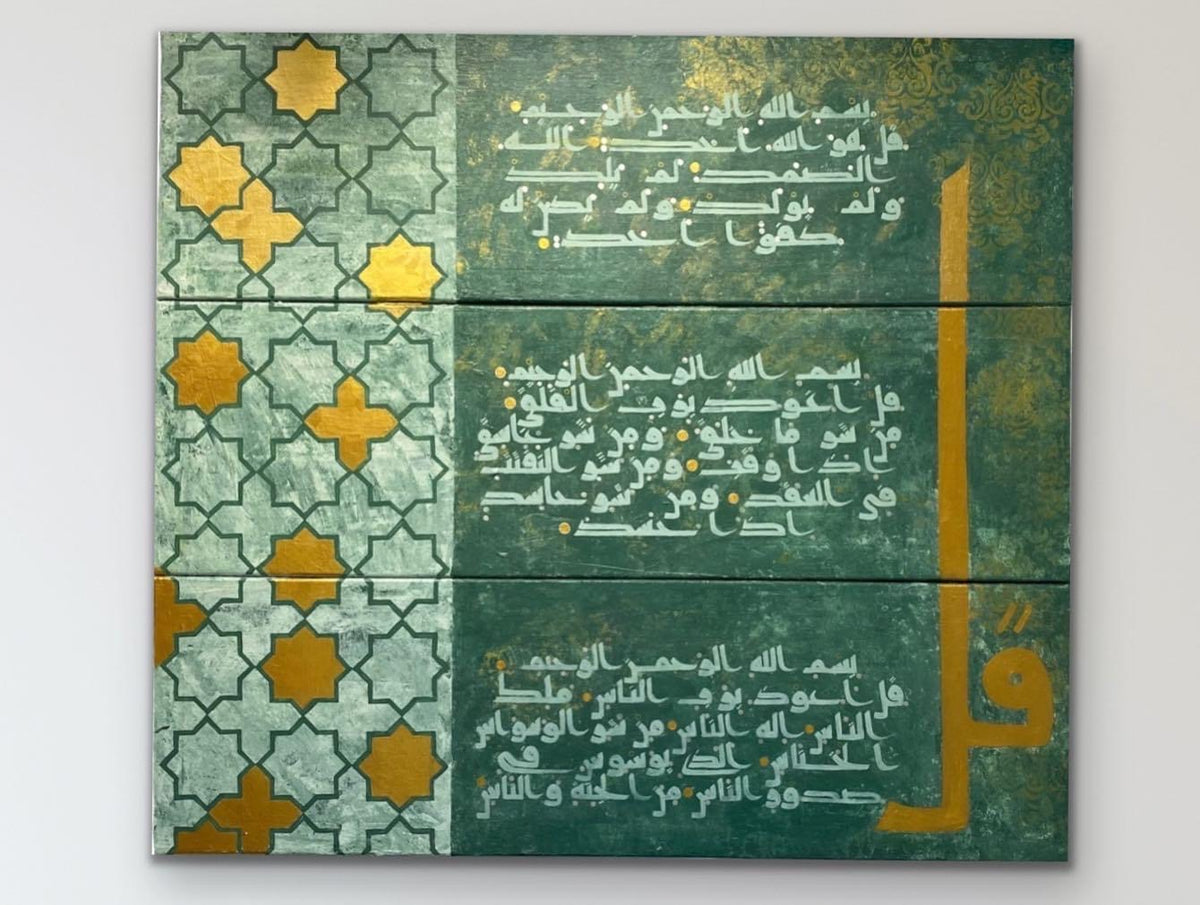 بسم الله الرحمن الرحيم
قل هو الله احد الله
الصمد لم يلد
ولم يولد ولم يكن له
كفوا احد
بسم الله الرحمن الرحيم
قل اعوذ برب الفلق
من شر ما خلق ومن شر غاسق
اذا وقب ومن شر النفثت
في العقد ومن شر حاسد
اذا حسد
بسم الله الرحمن الرحيم
قل اعوذ برب الناس ملك
الناس اله الناس من شر الوسواس
الخناس الذي يوسوس في
صدور الناس من الجنة والناس
قل